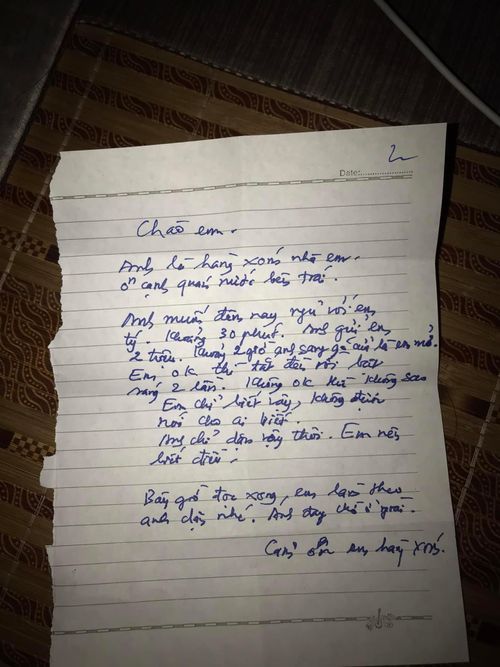 2
Date:
Chào em.
Anh là hàng xóm nhà em.
Ở cạnh quán nước bên trái.
Anh muốn đêm nay ngủ với em
tý. Khoảng 30 phút. Anh gửi em
2 triệu. Khoảng 2 giờ anh sang gõ cửa là em mở.
Em OK thì tắt đèn rồi bật
sáng 2 lần. Không OK thì không sao
Em chỉ biết vậy, không được
nói cho ai biết.
Anh chỉ dặn vậy thôi. Em nên
biết điều.
Bây giờ đọc xong, em làm theo
anh dặn nhé. Anh đang chờ ở
Cảm ơn em hàng xóm.